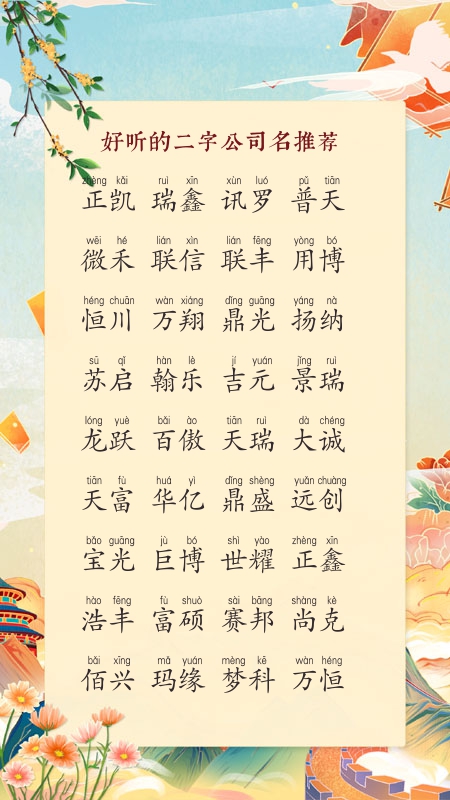 好听的二字公司名推荐
zhèng kǎi ruì xīn xùn luó pǔ tiān
正凯 瑞鑫 讯罗 普天
wēi hé lián xìn lián fēng yòng bó
微禾 联信 联丰 用博
héng chuān wàn xiáng dǐng guāng yáng nà
恒川 万翔 鼎光 扬纳
sū qǐ hàn lè jí yuán jǐng ruì
苏启 翰乐 吉元 景瑞
lóng yuè bǎi ào tiān ruì dà chéng
龙跃 百傲 天瑞 大诚
tiān fù huá yì dǐng shèng yuǎn chuàng
天富 华亿 鼎盛 远创
bǎo guāng jù bó shì yào zhèng xīn
宝光 巨博 世耀 正鑫
hào fēng fù shuò sài bāng shàng kè
浩丰 富硕 赛邦 尚克
bǎi xīng mǎ yuán mèng kē wàn héng
佰兴 玛缘 梦科 万恒